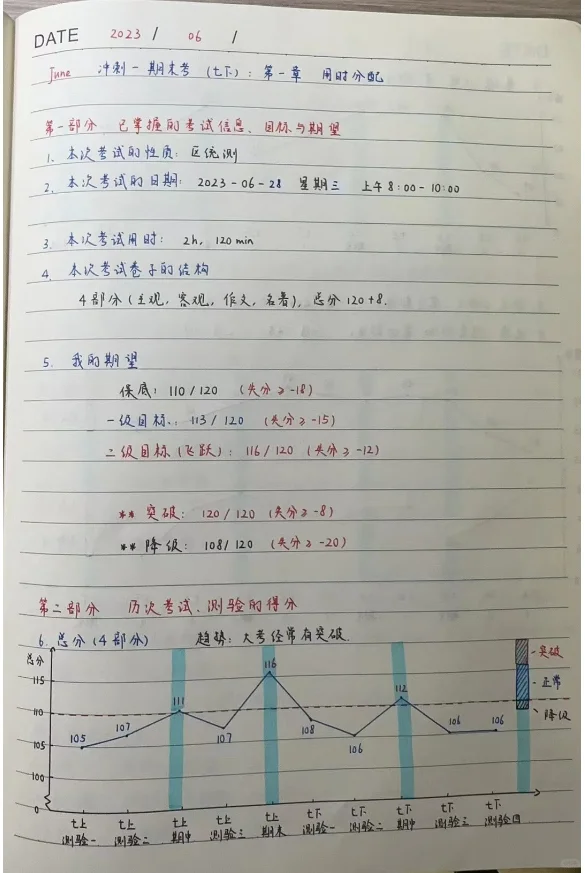 DATE 2023 / 06 /
June 冲刺一期末考 (七下): 第一章 用时分配
第一部分 已掌握的考试信息、目标与期望
1. 本次考试的性质: 区统测
2. 本次考试的日期: 2023-06-28 星期三 上午8:00-10:00
3. 本次考试用时: 2h, 120 min
4. 本次考试卷子的结构
4部分 (主观, 客观, 作文, 名著), 总分120+8.
5. 我的期望
保底: 110/120 (失分≥-18)
一级目标.: 113/120 (失分≥-15)
二级目标(飞跃): 116/120 (失分≥-12)
** 突破: 120/120 (失分≥-8)
** 降级: 108/120 (失分≥-20)
第二部分 历次考试、测验的得分
6. 总分(4部分) 趋势: 大考经常有突破.
总分
-突破
-正常
、降级
115
110
105
100
0
105
107
111
107
116
108
106
112
106
106
七上 七上 七上 七上 七上 七下 七下 七下 七下 七下
测验一 测验二 期中 测验三 期末 测验一 测验二 期中 测验三 测验四